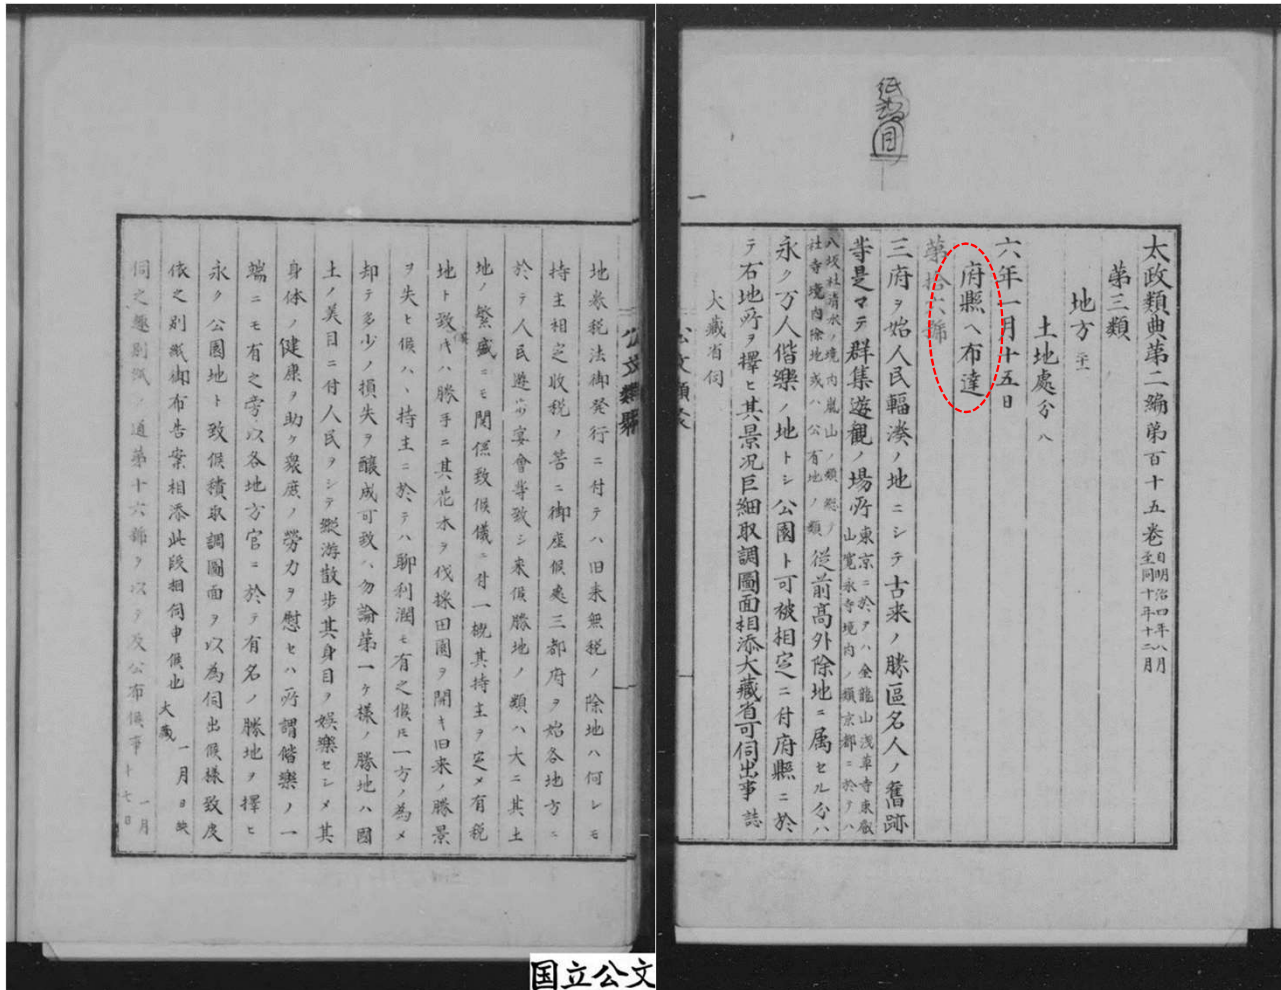 一
太政類典第二編第百十五卷 自明治四年八月 至同十年十二月
第三類
地方
土地處分八
六年一月十五日
府縣ヘ布達
第拾六號
三府ヲ始人民輻湊ノ地ニシテ古来ノ勝區名人ノ舊跡
等是マテ群集遊觀ノ場所 東京ニ於テハ金龍山浅草寺東叡
山寛永寺境内ノ類京都ニ於テハ
八坂社清水ノ境内嵐山ノ類総テ
社寺境内除地或ハ公有地ノ類 從前高外除地ニ属セル分ハ
永ク万人偕樂ノ地トシ公園ト可被相定ニ付府縣ニ於
テ右地所ヲ擇ヒ其景况巨細取調圖面相添大藏省可伺出事 誌
大藏省伺
公文類聚
地券税法御発行ニ付テハ旧来無税ノ除地ハ何レモ
持主相定收税ノ筈ニ御座候處三都府ヲ始各地方ニ
於テ人民遊宴會等致シ来候勝地ノ類ハ大ニ其土
地ノ繁盛ニモ関係致候儀ニ付一概其持主ヲ定メ有税
地ト致候ハ勝手ニ其花木ヲ伐採田園ヲ開キ旧来ノ勝景
ヲ失ヒ候ハヽ持主ニ於テハ聊利潤モ有之候ヒ一方ノ為メ
却テ多少ノ損失ヲ釀成可致ハ勿論第一ケ様ノ勝地ハ國
土ノ美目ニ付人民ヲシテ縦游散步其身目ヲ娯樂セシメ其
身体ノ健康ヲ助ケ衆庶ノ勞力ヲ慰セハ所謂偕樂ノ一
端ニモ有之旁以各地方官ニ於テ有名ノ勝地ヲ擇ヒ
永ク公園地ト致候積取調圖面ヲ以為伺出候様致度
依之別紙御布告案相添此段相伺申候也 大藏 一月日缺
伺之趣別紙ノ通第十六號ヲ以テ及公布候事 一月十七日
国立公文